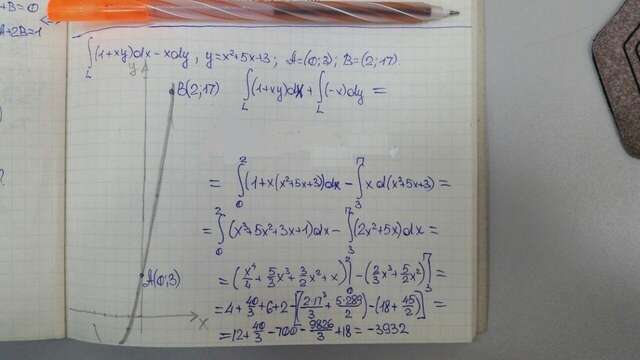 +B=0
A+2B=1
∫L (1+xy)dx-xdy, y=x²+5x+3; A=(0;3); B=(2;17).
y
B(2;17) ∫L (1+xy)dx + ∫L (-x)dy =
= ∫₀² (1+x(x²+5x+3))dx - ∫₃¹⁷ x d(x²+5x+3) =
= ∫₀² (x³+5x²+3x+1)dx - ∫₃¹⁷ (2x²+5x)dx =
A(0;3) = (x⁴/4 + 5/3 x³ + 3/2 x² + x)|₀² - (2/3 x³ + 5/2 x²)|₃¹⁷ =
= 4 + 40/3 + 6 + 2 - [(2·17³/3 + 5·289/2) - (18 + 45/2)] =
x = 12 + 40/3 - 700 - 9826/3 + 18 = -3932